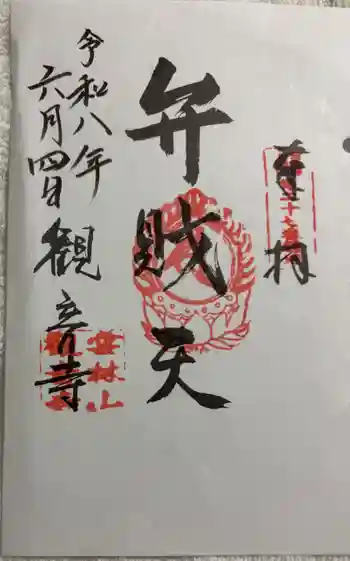 奉拝
弁財天
令和八年
六月四日
観音寺